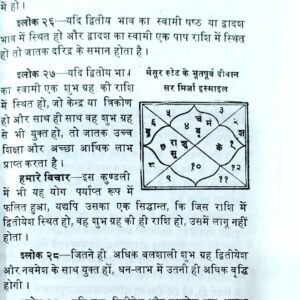 में हो।
श्लोक २६—यदि द्वितीय भाव का स्वामी षष्ठ या द्वादश
भाव में स्थित हो और द्वादश का स्वामी एक पाप राशि में स्थित
हो तो जातक दरिद्र के समान होता है।
श्लोक २७—यदि द्वितीय भाव
का स्वामी एक शुभ ग्रह की राशि
में स्थित हो, जो केन्द्र या त्रिकोण
हो और साथ ही साथ वह शुभ ग्रह
से भी युक्त हो, तो जातक उच्च
शिक्षा और अच्छा आर्थिक लाभ
प्राप्त करता है।
मैसूर स्टेट के भूतपूर्व दीवान
सर मिर्जा इस्माइल
५
३
६
च
४
मं
२
बु
शु
बृ
१
के
७
रा
श
सू
१०
८
९
११
१२
हमारे विचार—इस कुण्डली
में भी यह योग पर्याप्त रूप में
फलित हुआ, यद्यपि उसका एक सिद्धान्त, कि जिस राशि में
द्वितीयेश स्थित हो, वह शुभ ग्रह की ही राशि हो, उसमें लागू नहीं
होता।
श्लोक २८—जितने ही अधिक बलशाली शुभ ग्रह द्वितीयेश
और नवमेश के साथ युक्त हों, धन-लाभ में उतनी ही अधिक बुद्धि
होगी।